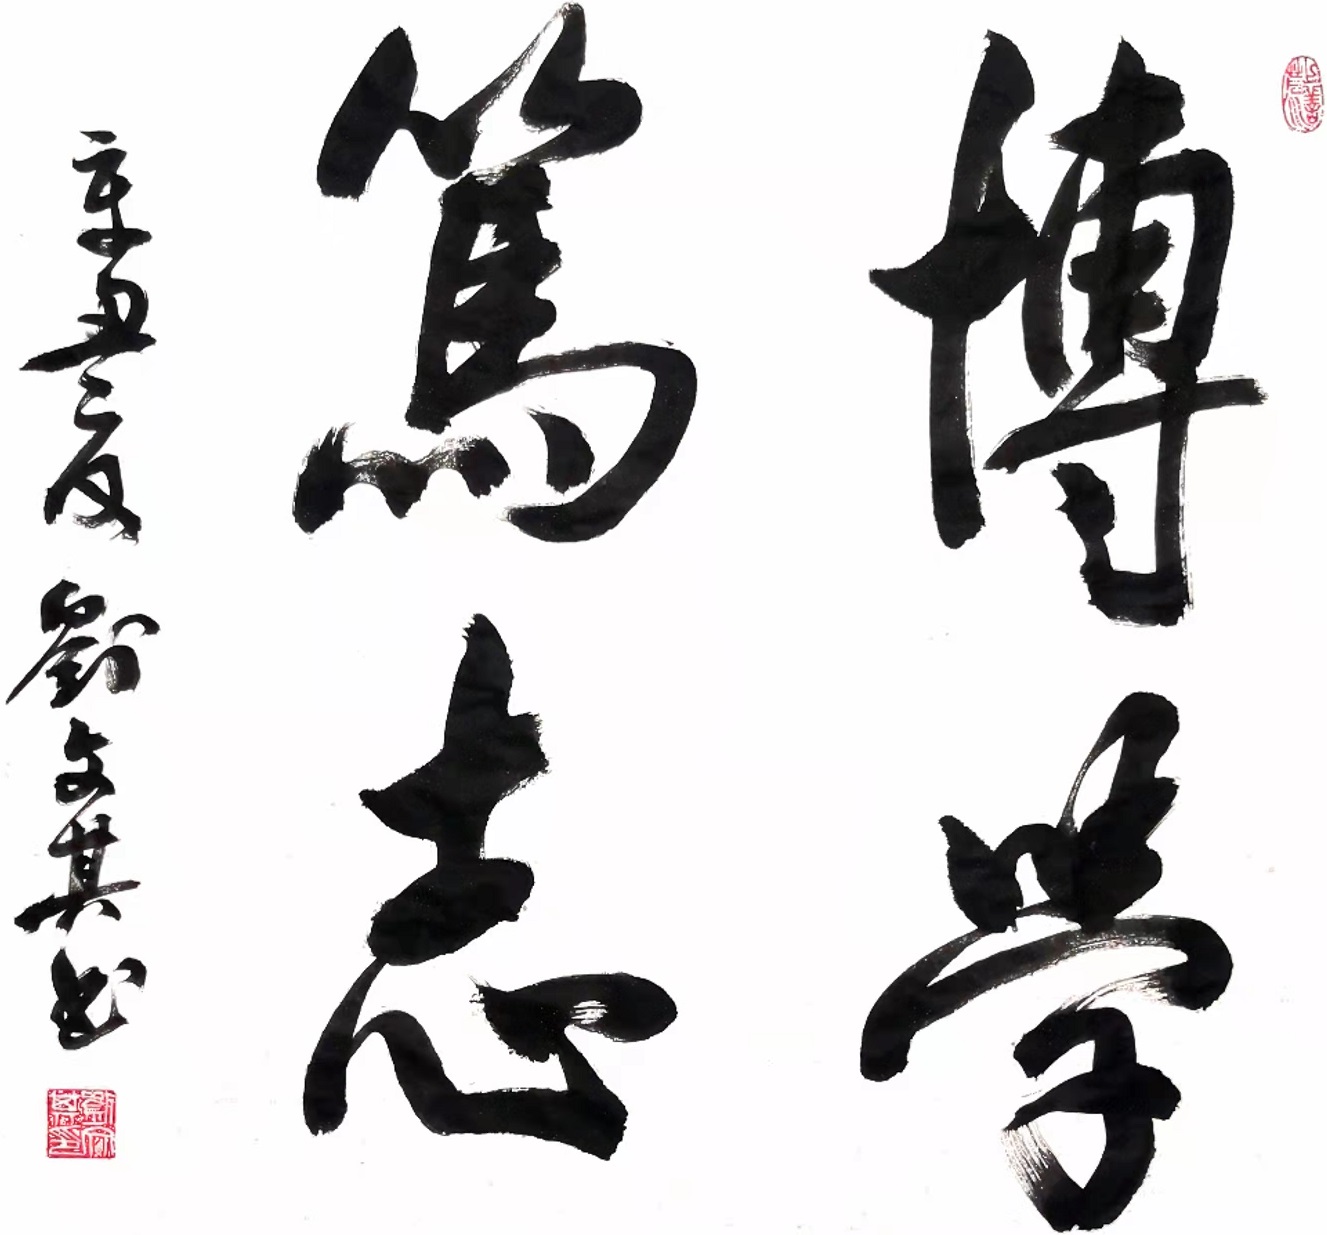 博学
篤志
辛丑夏 劉文其书